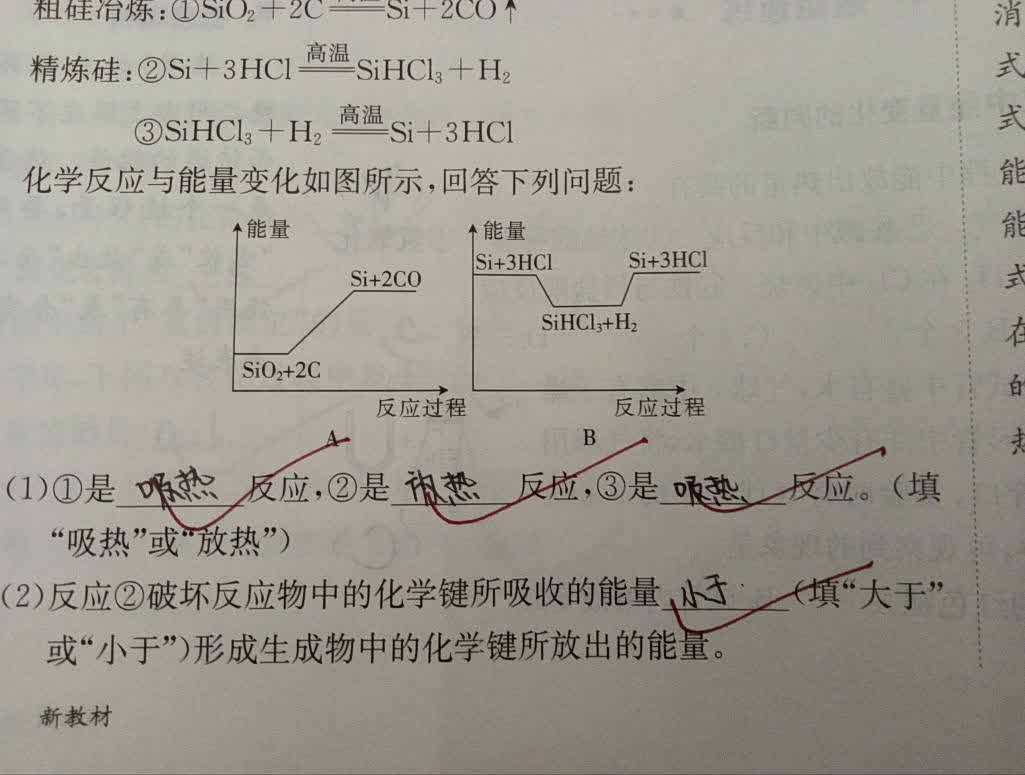 粗硅冶炼:①SiO₂+2C 高温 Si+2CO↑
精炼硅:②Si+3HCl 高温 SiHCl₃+H₂
③SiHCl₃+H₂ 高温 Si+3HCl
化学反应与能量变化如图所示,回答下列问题:
能量
Si+2CO
SiO₂+2C
反应过程
A
能量
Si+3HCl
Si+3HCl
SiHCl₃+H₂
反应过程
B
(1)①是 吸热 反应,②是 放热 反应,③是 吸热 反应。(填
“吸热”或“放热”)
(2)反应②破坏反应物中的化学键所吸收的能量 小于 (填“大于”
或“小于”)形成生成物中的化学键所放出的能量。
新教材
消
式
式
能
能
式
在
的